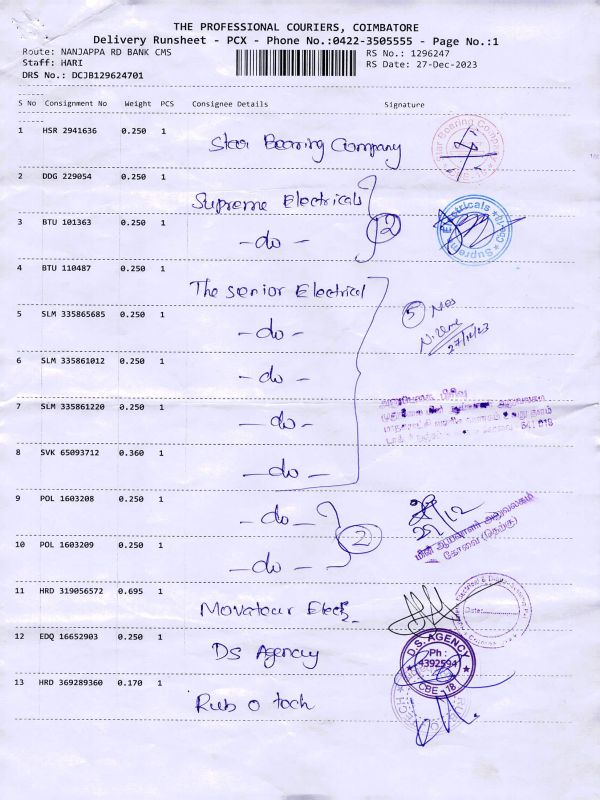 THE PROFESSIONAL COURIERS, COIMBATORE
Delivery Runsheet - PCX - Phone No.:0422-3505555 - Page No.:1
Route: NANJAPPA RD BANK CMS RS No.: 1296247
Staff: HARI RS Date: 27-Dec-2023
DRS No.: DCJB129624701
S No Consignment No Weight PCS Consignee Details Signature
1 HSR 2941636 0.250 1
Star Bearing Company
2 DDG 229054 0.250 1
Supreme Electricals
3 BTU 101363 0.250 1
- do - 2
4 BTU 110487 0.250 1
The Senior Electrical
5 SLM 335865685 0.250 1 5 Nos
- do - 27/12/23
6 SLM 335861012 0.250 1
- do -
7 SLM 335861220 0.250 1
- do -
8 SVK 65093712 0.360 1
- do -
9 POL 1603208 0.250 1
- do - 2
10 POL 1603209 0.250 1
- do -
மின் ஆய்வாளர் அலுவலகம்
கோவை (தெற்கு)
11 HRD 319056572 0.695 1
Date:
12 EDQ 16652903 0.250 1
DS Agency
D.S. AGENCY
Ph :
4392594
CBE - 18
13 HRD 369289360 0.170 1
Rub O tech